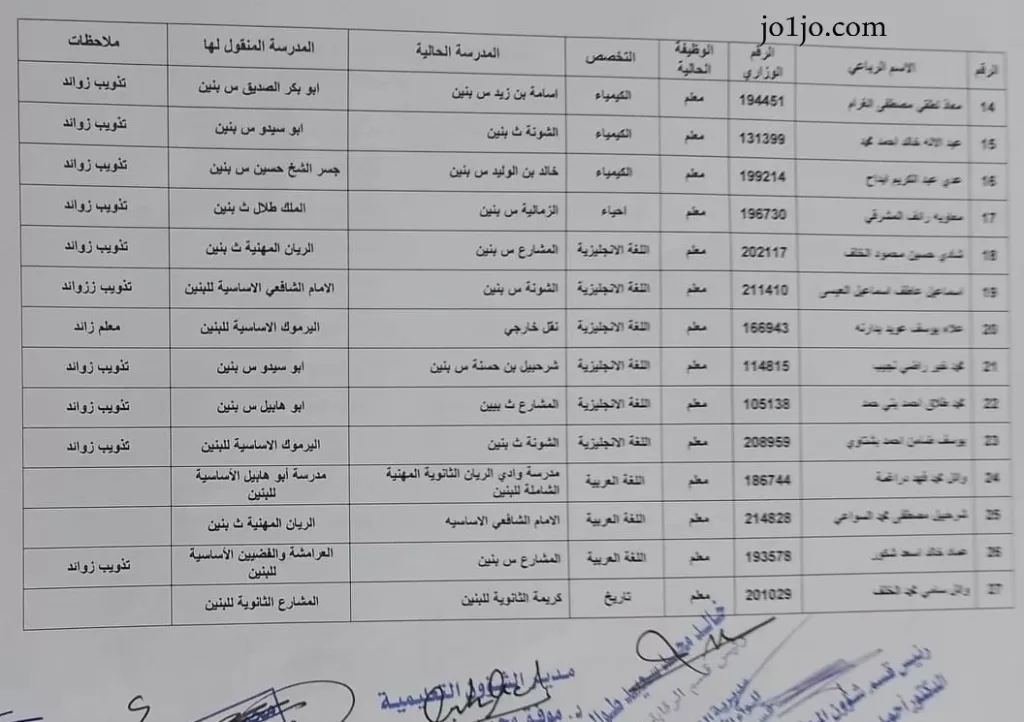 jo1jo.com
الرقم الاسم الرباعي الرقم الوزاري الوظيفة الحالية التخصص المدرسة الحالية المدرسة المنقول لها ملاحظات
14 معاذ لطفي مصطفى العزام 194451 معلم الكيمياء اسامة بن زيد س بنين ابو بكر الصديق س بنين تذويب زوائد
15 عبد الاله خالد احمد محمد 131399 معلم الكيمياء الشونة ث بنين ابو سيدو س بنين تذويب زوائد
16 عدي عبد الكريم ابداح 199214 معلم الكيمياء خالد بن الوليد س بنين جسر الشخ حسين س بنين تذويب زوائد
17 معاويه رائف المشرقي 196730 معلم احياء الزمالية س بنين الملك طلال ث بنين تذويب زوائد
18 شادي حسين محمود الخلف 202117 معلم اللغة الانجليزية المشارع س بنين الريان المهنية ث بنين تذويب زوائد
19 اسماعيل عاطف اسماعيل العيسى 211410 معلم اللغة الانجليزية الشونة س بنين الامام الشافعي الاساسية للبنين تذويب ززوائد
20 علاء يوسف عويد بدارنه 166943 معلم اللغة الانجليزية نقل خارجي اليرموك الاساسية للبنين معلم زائد
21 محمد خير راضي نجيب 114815 معلم اللغة الانجليزية شرحبيل بن حسنة س بنين ابو سيدو س بنين تذويب زوائد
22 محمد طلاق احمد بني حمد 105138 معلم اللغة الانجليزية المشارع ث ببين ابو هابيل س بنين تذويب زوائد
23 يوسف ضامن احمد بشتاوي 208959 معلم اللغة الانجليزية الشونة ث بنين اليرموك الاساسية للبنين تذويب زوائد
24 وائل محمد فهد دراغمة 186744 معلم اللغة العربية مدرسة وادي الريان الثانوية المهنية الشاملة للبنين مدرسة أبو هابيل الأساسية للبنين
25 شرحبيل مصطفى محمد السواعي 214828 معلم اللغة العربية الامام الشافعي الاساسيه الريان المهنية ث بنين
26 عماد خالد اسعد شكور 193578 معلم اللغة العربية المشارع س بنين العرامشة والفضيين الأساسية للبنين تذويب زوائد
27 وائل سامي محمد الخلف 201029 معلم تاريخ كريمة الثانوية للبنين المشارع الثانوية للبنين
مدير الشؤون التعليمية
رئيس قسم